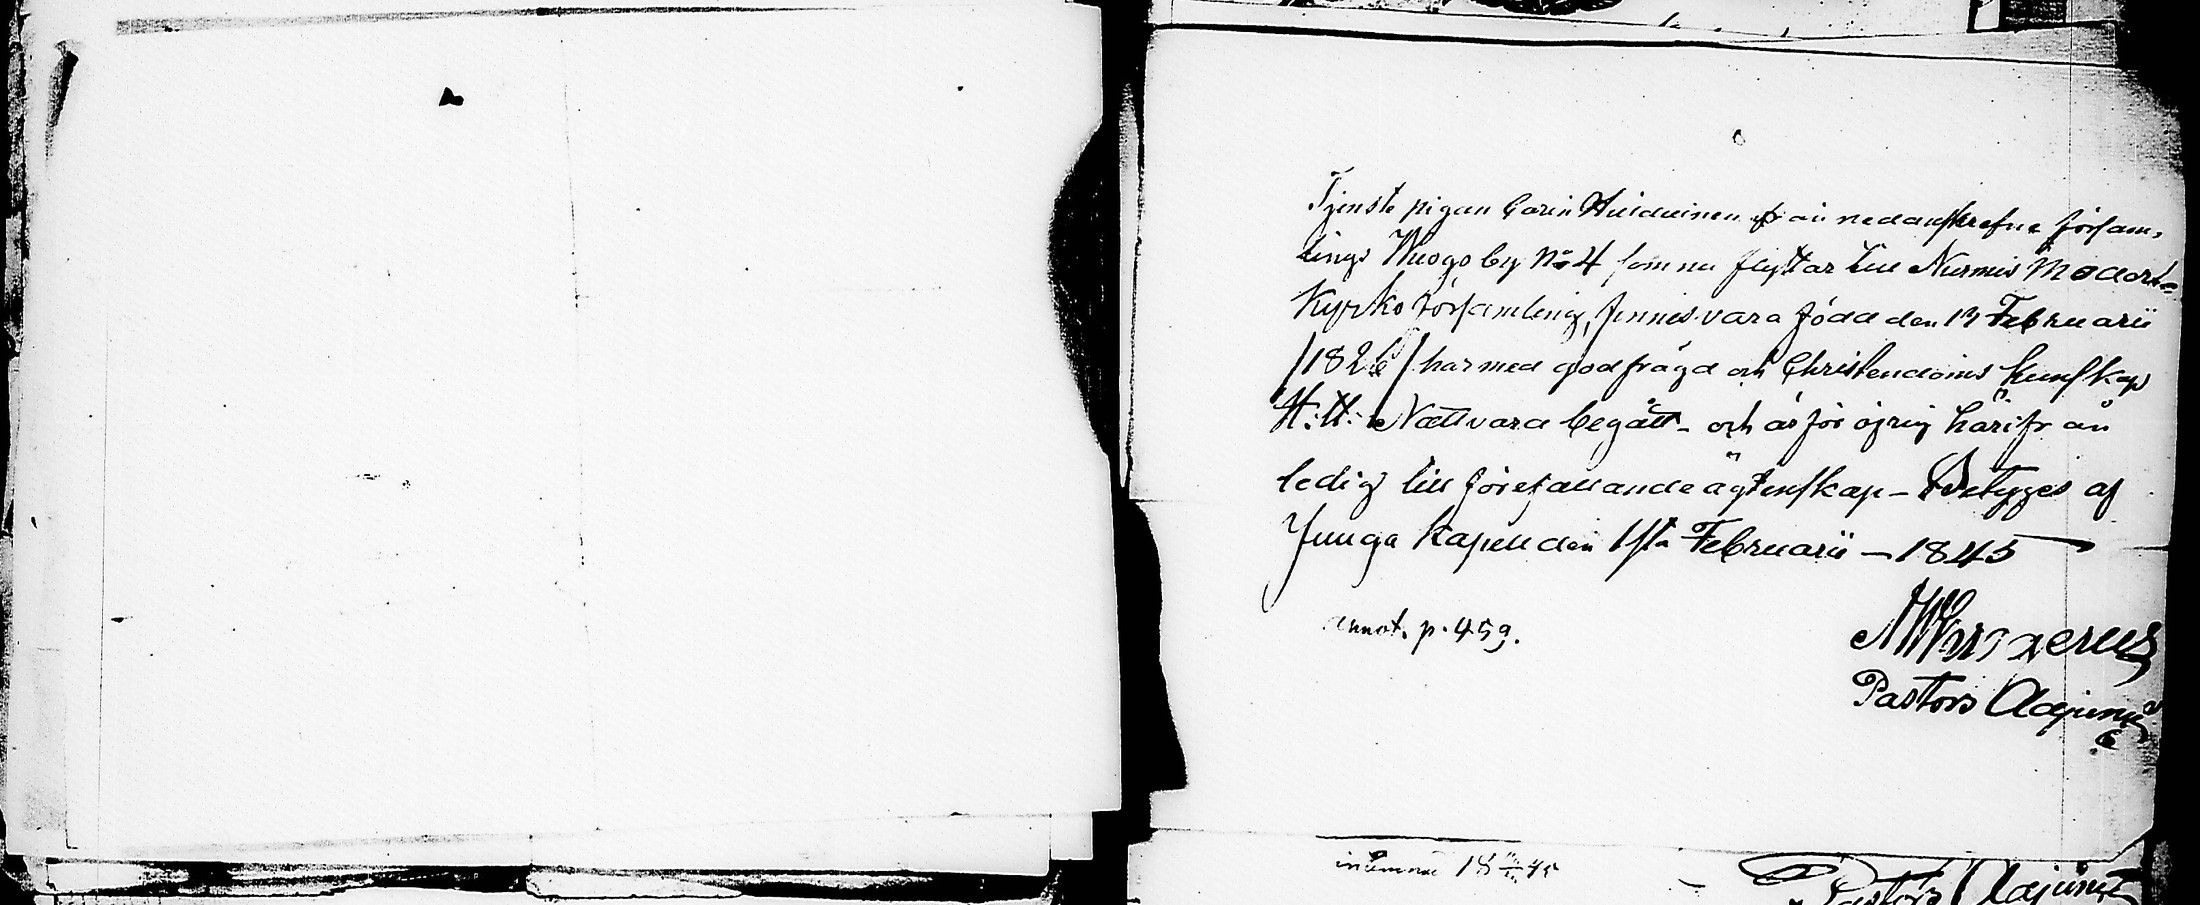 Tjenste pigan Carin Huiduinen från nedanskrefne försam-
lings Wuogo by No 4 som nu flyttar till Nurmis Moder-
Kyrko församling, finnes vara född den 17 Februarii
/1826/ har med god frägd och Christendoms kunskap
H. H. Nattvard begått - och är för öfrig härifrån
ledig till förefallande ägtenskap - Betygas af
Juuga Kapell den 1sta Februarii - 1845
annot. p. 459.
Pastors Adjunct
18 45
Pastors Adjunct